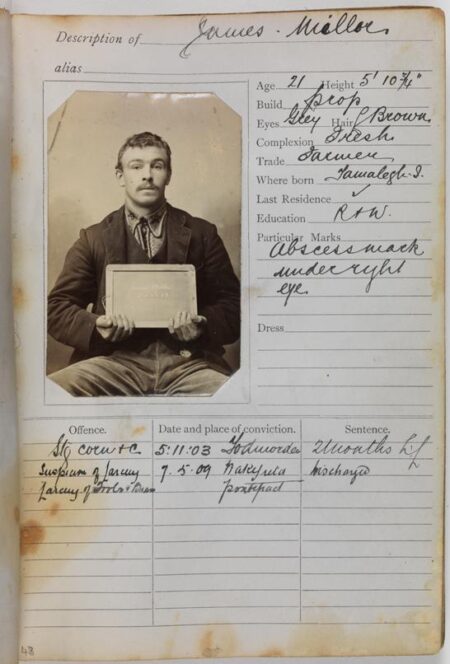 Description of James. Millor
alias
Age 21 Height 5' 10¾"
Build prop
Eyes Grey Hair Brown
Complexion Fresh
Trade Farmer
Where born
Last Residence ✓
Education R & W.
Particular Marks
Abscess mark
under right
eye
Dress
Offence. Date and place of conviction. Sentence.
Stg corn &c 5:11:03 Todmorden 2 Months
Suspicion of larceny 7.5.09 Wakefield Discharged
Larceny of Tools &
48